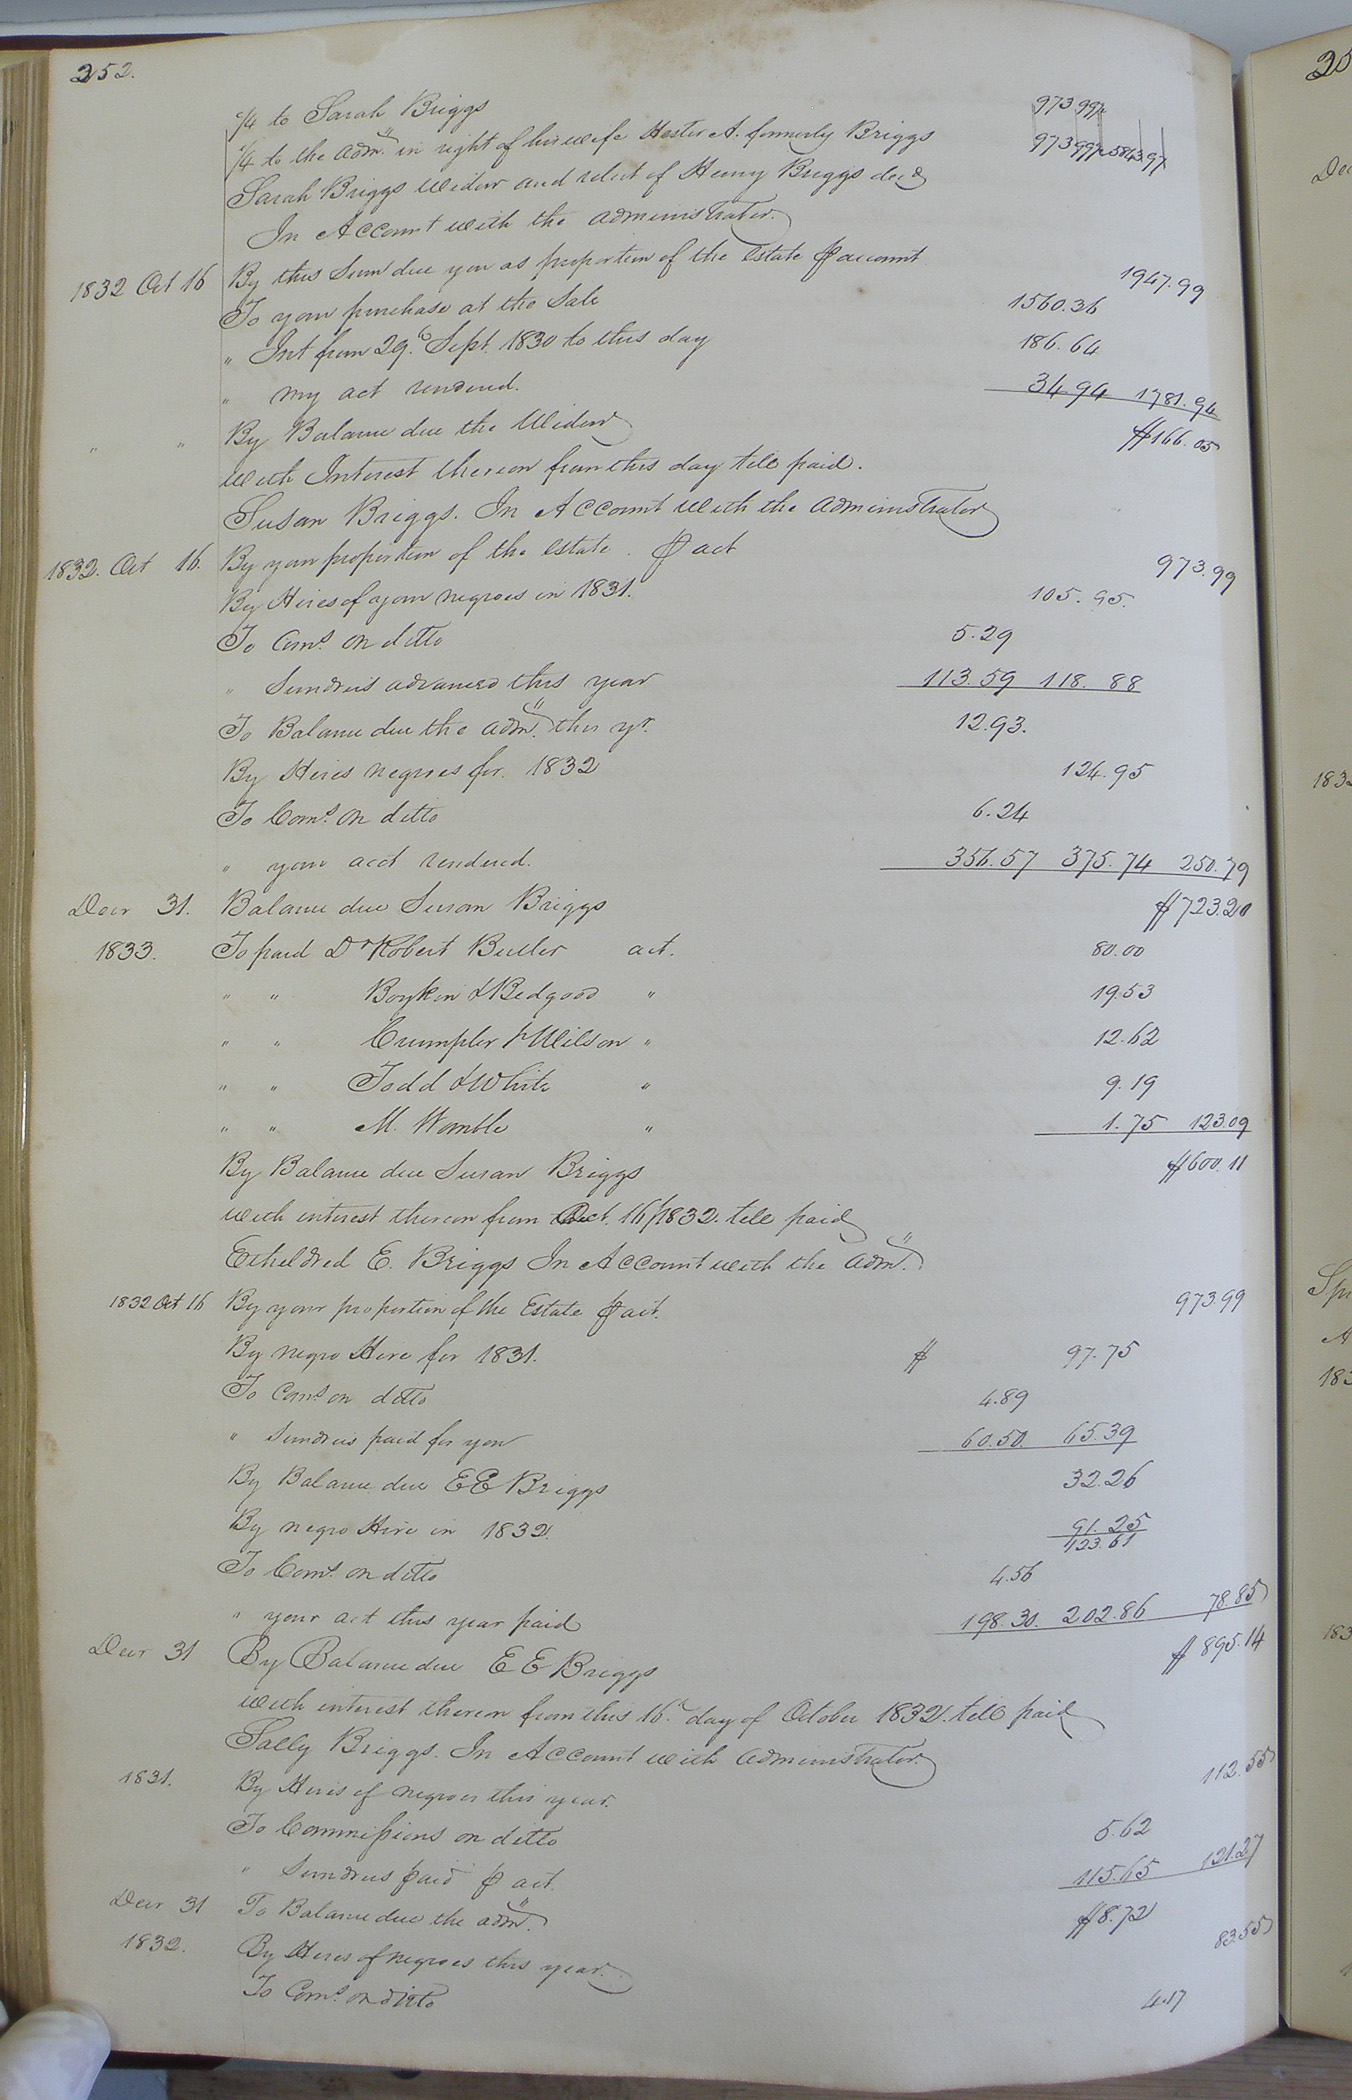 252.
1/4 to Sarah Briggs 973.99½
1/4 to the admr. in right of his wife Hester A. formerly Briggs 973.99½ 5843.97
Sarah Briggs Widow and relict of Henry Briggs decd
In Account with the administrator.
1832 Oct 16 By this Sum due you as proportion of the Estate ⅌ account 1947.99
To your purchase at the Sale 1560.36
" Int from 29.th Sept. 1830 to this day 186.64
" my act rendered. 34.94 1781.94
" " By Balance due the Widow $166.05
With Interest thereon from this day till paid.
Susan Briggs. In Account with the administrator
1832. Oct 16. By your proportion of the estate ⅌ act 973.99
By Hires of your negroes in 1831. 105.95.
To Coms. on ditto 5.29
" Sundries advanced this year 113.59 118.88
To Balance due the admr. this yr. 12.93.
By Hires negroes for 1832 124.95
To Coms. on ditto 6.24
" your acct rendered. 356.57 375.74 250.79
Decr 31. Balance due Susan Briggs $723.20
1833. To paid Dr Robert Butler act. 80.00
" " Boykin & Bedgood " 19.53
" " Crumpler & Wilson " 12.62
" " Todd & White " 9.19
" " M. Womble " 1.75 123.09
By Balance due Susan Briggs $600.11
with interest thereon from Oct. 16, 1832. till paid
Etheldred E. Briggs In Account with the admr.
1832 Oct 16 By your proportion of the Estate ⅌ act. 973.99
By negro Hire for 1831. $ 97.75
To Coms on ditto 4.89
" Sundries paid for you 60.50. 65.39
By Balance due E E Briggs 32.26
By negro Hire in 1832. 91.25
123.61
To Coms. on ditto 4.56
" your act this year paid 198.30. 202.86 78.85
Decr 31 By Balance due E E Briggs $895.14
with interest thereon from this 16th day of October 1832. till paid
Sally Briggs. In Account with administrator.
1831. By Hires of negroes this year. 112.55
To Commissions on ditto 5.62
" Sundries paid ⅌ act. 115.65 121.27
Decr 31 To Balance due the admr. $8.72
1832. By Hires of negroes this year. 83.55
To Coms. on ditto 4.17